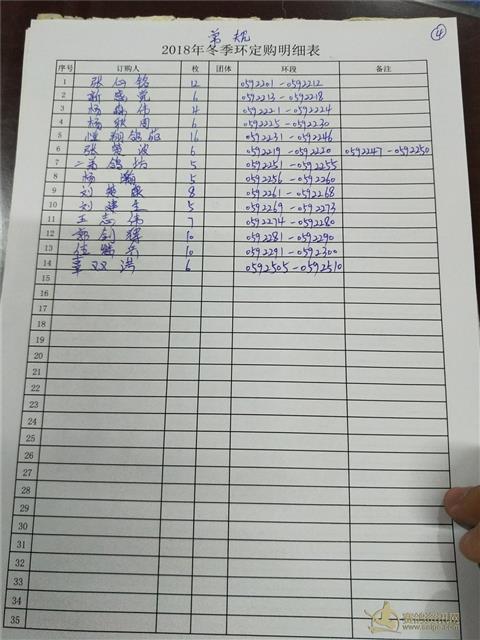 常规
④
2018年冬季环定购明细表
序号 订购人 枚 团体 环段 备注
1 张心铭 12 0592201-0592212
2 6 0592213-0592218
3 杨海伟 4 0592221-0592224
4 杨耿周 6 0592225-0592230
5 恒翔鸽苑 16 0592231-0592246
6 张荣波 6 0592219-0592220 0592247-0592250
7 二弟鸽坊 5 0592251-0592255
8 杨瀚 5 0592256-0592260
9 刘 8 0592261-0592268
10 刘建 5 0592269-0592273
11 王志伟 7 0592274-0592280
12 郭剑辉 10 0592281-0592290
13 10 0592291-0592300
14 双洪 6 0592505-0592510
15
16
17
18
19
20
21
22
23
24
25
26
27
28
29
30
31
32
33
34
35
赛鸽资讯网
www.saige.com